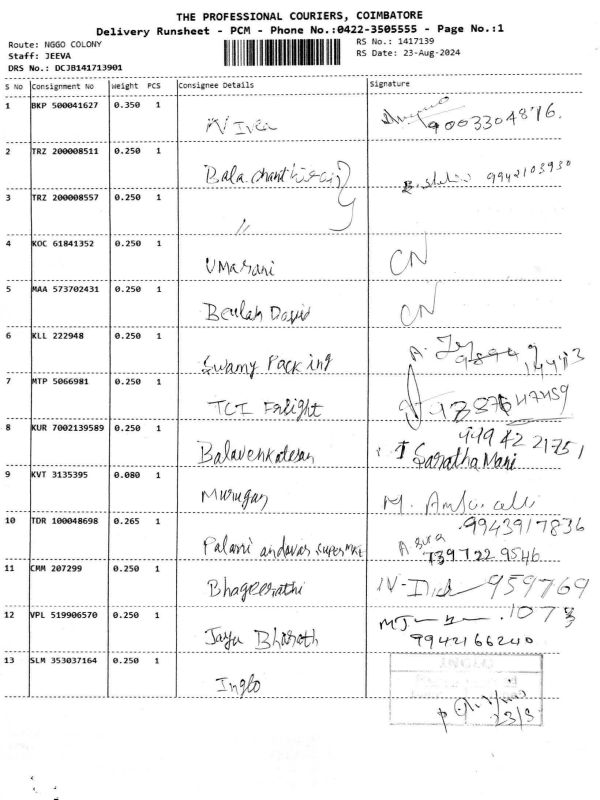 THE PROFESSIONAL COURIERS, COIMBATORE
Delivery Runsheet - PCM - Phone No.:0422-3505555 - Page No.:1
Route: NGGO COLONY RS No.: 1417139
Staff: JEEVA RS Date: 23-Aug-2024
DRS No.: DCJB141713901
S No Consignment No Weight PCS Consignee Details Signature
1 BKP 500041627 0.350 1
9003304876.
2 TRZ 200008511 0.250 1 Bala 9942103930
3 TRZ 200008557 0.250 1 "
4 KOC 61841352 0.250 1 UMarani CN
5 MAA 573702431 0.250 1 Beulah David CN
6 KLL 222948 0.250 1 Swamy Packing A.
7 MTP 5066981 0.250 1 TCI
8 KUR 7002139589 0.250 1 Balavenkatesan
Saratha Mani
9 KVT 3135395 0.080 1 Murugan M.
9943917836
10 TDR 100048698 0.265 1 Palani andavar superMKt
739722 9546
11 CMM 207299 0.250 1 Bhageerathi 959769
1073
12 VPL 519906570 0.250 1 Jaya Bharath
9942166240
13 SLM 353037164 0.250 1 Inglo
INGLO
23/8